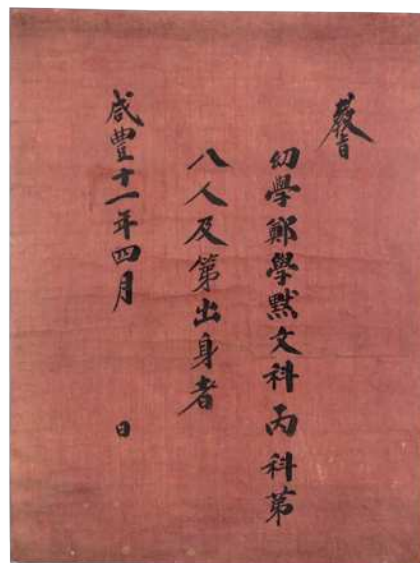 教旨
幼學鄭學默文科丙科第
八人及第出身者
咸豊十一年四月　日